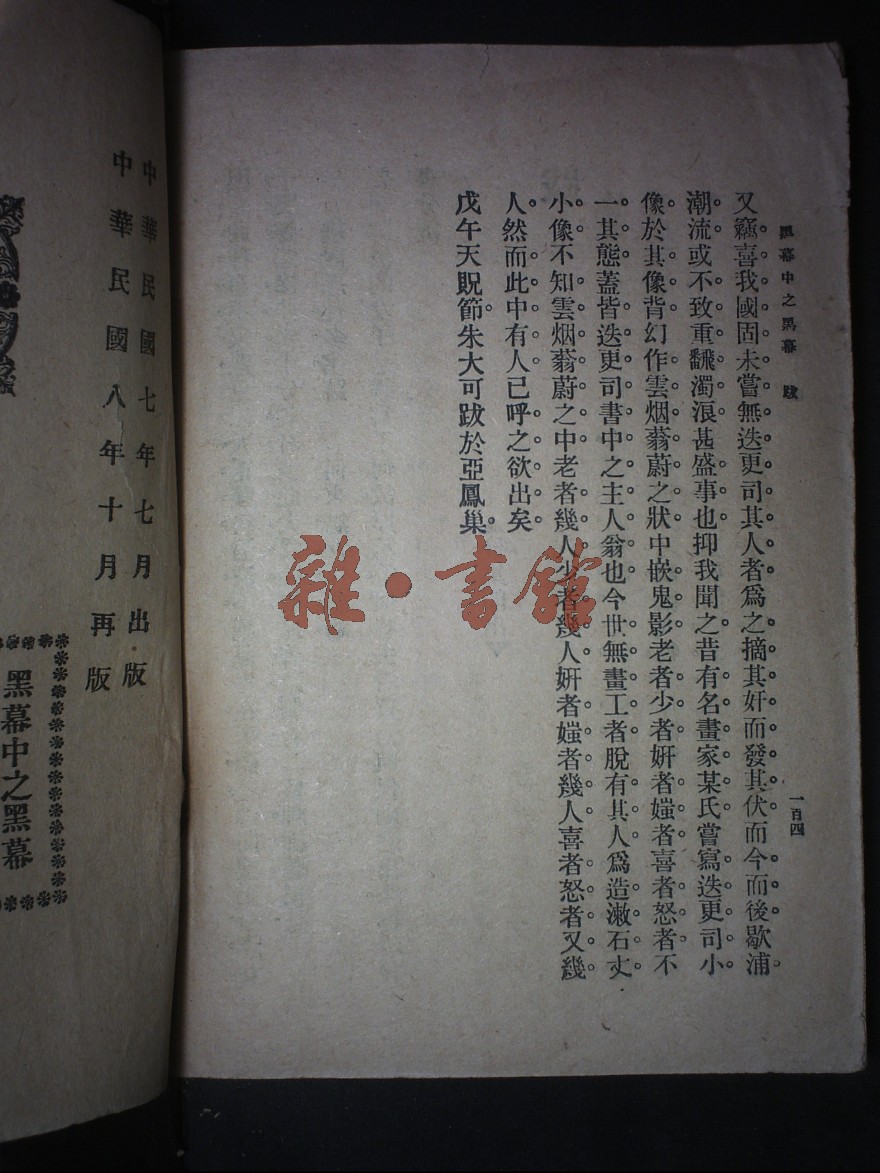 黑幕中之黑幕　跋
一百四
又竊喜我國固未嘗無迭更司其人者爲之摘其奸而發其伏而今而後歇浦
潮流或不致重飜濁浪甚盛事也抑我聞之昔有名畫家某氏嘗寫迭更司小
像於其像背幻作雲烟蓊蔚之狀中嵌鬼影老者少者妍者媸者喜者怒者不
一其態蓋皆迭更司書中之主人翁也今世無畫工者脫有其人爲造漱石丈
小像不知雲烟蓊蔚之中老者幾人少者幾人妍者媸者幾人喜者怒者又幾
人然而此中有人已呼之欲出矣
戊午天貺節朱大可跋於亞鳳巢
雜·書館
中華民國七年七月出版
中華民國八年十月再版
黑幕中之黑幕